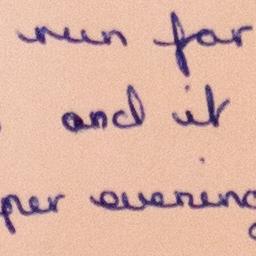 run for
and it
per evening